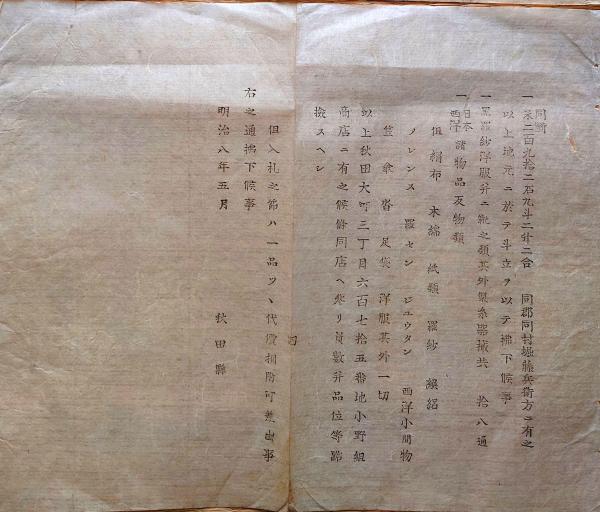 同断
一 米二百九拾二石九斗二升二合 同郡同村堀藤兵衛方ニ有之
以上地元ニ於テ斗立ヲ以テ拂下候事
一 黒羅紗洋服并ニ靴之類其外製糸器械共 拾八通
一 日本西洋 諸物品及物類
但絹布 木綿 紙類 羅紗 緞絽
フレンス 羅セン ジユウタン 西洋小間物
笠 傘 沓 足袋 洋服其外一切
以上秋田大町三丁目六百七拾五番地小野組
商店ニ有之候條同店ヘ参リ員數并品位等踏
檢スヘシ
但入札之節ハ一品ツヽ代價相附可差出事
右之通拂下候事
明治八年五月 秋田縣